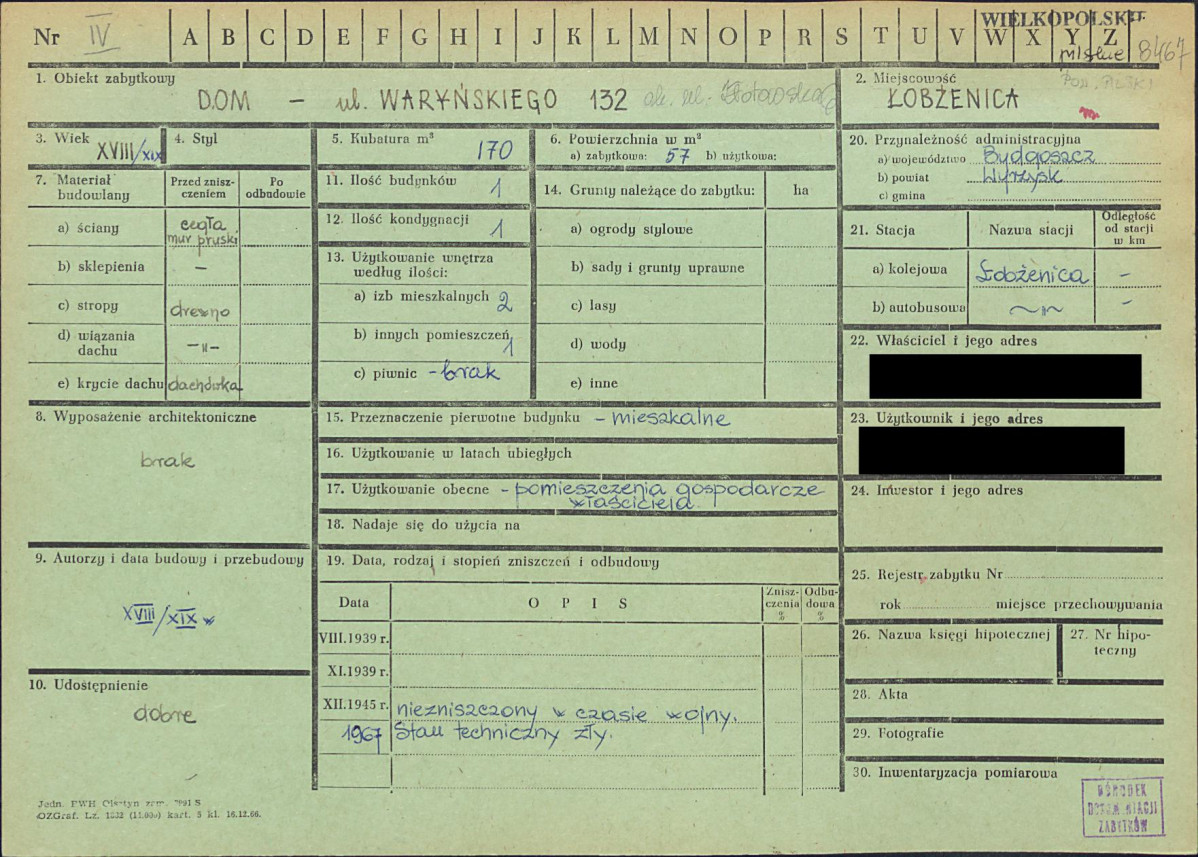 WIELKOPOLSKIE
Nr IV A B C D E F G H I J K L M N O P R S T U V W X Y Z
miskie 8467
1. Obiekt zabytkowy
DOM – ul. WARYŃSKIEGO 132 ob. ul. Złotowska
2. Miejscowość
pow. PILSKI
ŁOBŻENICA
3. Wiek
XVIII/XIX
4. Styl
5. Kubatura m³
170
6. Powierzchnia w m²
a) zabytkowa: 57 b) użytkowa:
7. Materiał budowlany
Przed zniszczeniem
Po odbudowie
a) ściany cegła, mur pruski
b) sklepienia –
c) stropy drewno
d) wiązania dachu –"–
e) krycie dachu dachówka
8. Wyposażenie architektoniczne
brak
9. Autorzy i data budowy i przebudowy
XVIII/XIX w
10. Udostępnienie
dobre
11. Ilość budynków 1
12. Ilość kondygnacji 1
13. Użytkowanie wnętrza według ilości:
a) izb mieszkalnych 2
b) innych pomieszczeń 1
c) piwnic – brak
14. Grunty należące do zabytku: ha
a) ogrody stylowe
b) sady i grunty uprawne
c) lasy
d) wody
e) inne
15. Przeznaczenie pierwotne budynku – mieszkalne
16. Użytkowanie w latach ubiegłych
17. Użytkowanie obecne – pomieszczenia gospodarcze
właściciela.
18. Nadaje się do użycia na
19. Data, rodzaj i stopień zniszczeń i odbudowy
Data
O P I S
Zniszczenia %
Odbudowa %
VIII.1939 r.
XI.1939 r.
XII.1945 r. niezniszczony w czasie wojny.
1967 Stan techniczny zły.
20. Przynależność administracyjna
a) województwo Bydgoszcz
b) powiat Wyrzysk
c) gmina
21. Stacja
Nazwa stacji
Odległość od stacji w km
a) kolejowa Łobżenica –
b) autobusowa ~"~ –
22. Właściciel i jego adres
23. Użytkownik i jego adres
24. Inwestor i jego adres
25. Rejestr zabytku Nr
rok miejsce przechowywania
26. Nazwa księgi hipotecznej
27. Nr hipoteczny
28. Akta
29. Fotografie
30. Inwentaryzacja pomiarowa
OŚRODEK
DOKUMENTACJI
ZABYTKÓW
Jedn. PWH Olsztyn zam. 7991 S
OZGraf. Lz. 1832 (11.000) kart. 5 kl. 16.12.66.